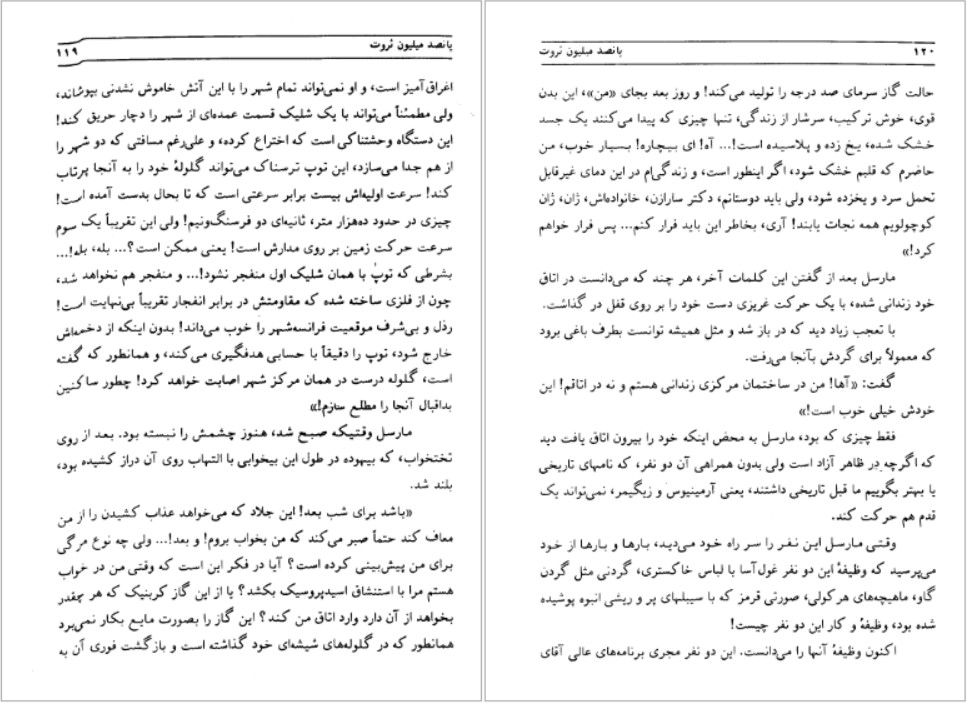 پانصد میلیون ثروت
۱۱۹
اغراق‌آمیز است، و او نمی‌تواند تمام شهر را با این آتش خاموش نشدنی بپوشاند،
ولی مطمئناً می‌تواند با یک شلیک قسمت عمده‌ای از شهر را دچار حریق کند!
این دستگاه وحشتناکی است که اختراع کرده، و علی‌رغم مسافتی که دو شهر را
از هم جدا می‌سازد، این توپ ترسناک می‌تواند گلولهٔ خود را به آنجا پرتاب
کند! سرعت اولیه‌اش بیست برابر سرعتی است که تا بحال بدست آمده است!
چیزی در حدود ده‌هزار متر، ثانیه‌ای دو فرسنگ‌ونیم! ولی این تقریباً یک سوم
سرعت حرکت زمین بر روی مدارش است! یعنی ممکن است؟... بله، بله!...
بشرطی که توپ با همان شلیک اول منفجر نشود!... و منفجر هم نخواهد شد،
چون از فلزی ساخته شده که مقاومتش در برابر انفجار تقریباً بی‌نهایت است!
رذل و بی‌شرف موقعیت فرانسه‌شهر را خوب می‌داند! بدون اینکه از دخمه‌اش
خارج شود، توپ را دقیقاً با حسابی هدفگیری می‌کند، و همانطور که گفته
است، گلوله درست در همان مرکز شهر اصابت خواهد کرد! چطور ساکنین
بداقبال آنجا را مطلع سازم!»
مارسل وقتیکه صبح شد، هنوز چشمش را نبسته بود. بعد از روی
تختخواب، که بیهوده در طول این بیخوابی با التهاب روی آن دراز کشیده بود،
بلند شد.
«باشد برای شب بعد! این جلاد که می‌خواهد عذاب کشیدن را از من
معاف کند حتماً صبر می‌کند که من بخواب بروم! و بعد!... ولی چه نوع مرگی
برای من پیش‌بینی کرده است؟ آیا در فکر این است که وقتی من در خواب
هستم مرا با استنشاق اسیدپروسیک بکشد؟ یا از این گاز کربنیک که هر چقدر
بخواهد از آن دارد وارد اتاق من کند؟ این گاز را بصورت مایع بکار نمی‌برد
همانطور که در گلوله‌های شیشه‌ای خود گذاشته است و بازگشت فوری آن به
پانصد میلیون ثروت
۱۲۰
حالت گاز سرمای صد درجه را تولید می‌کند! و روز بعد بجای «من»، این بدن
قوی، خوش ترکیب، سرشار از زندگی، تنها چیزی که پیدا می‌کنند یک جسد
خشک شده، یخ زده و پلاسیده است!... آه! ای بیچاره! بسیار خوب، من
حاضرم که قلبم خشک شود، اگر اینطور است، و زندگی‌ام در این دمای غیرقابل
تحمل سرد و یخزده شود، ولی باید دوستانم، دکتر سارازن، خانواده‌اش، ژان، ژان
کوچولویم همه نجات یابند! آری، بخاطر این باید فرار کنم... پس فرار خواهم
کرد!»
مارسل بعد از گفتن این کلمات آخر، هر چند که می‌دانست در اتاق
خود زندانی شده، با یک حرکت غریزی دست خود را بر روی قفل در گذاشت.
با تعجب زیاد دید که در باز شد و مثل همیشه توانست بطرف باغی برود
که معمولاً برای گردش بآنجا می‌رفت.
گفت: «آها! من در ساختمان مرکزی زندانی هستم و نه در اتاقم! این
خودش خیلی خوب است!»
فقط چیزی که بود، مارسل به محض اینکه خود را بیرون اتاق یافت دید
که اگرچه در ظاهر آزاد است ولی بدون همراهی آن دو نفر، که نامهای تاریخی
یا بهتر بگوییم ما قبل تاریخی داشتند، یعنی آرمینیوس و زیگیمر، نمی‌تواند یک
قدم هم حرکت کند.
وقتی مارسل این نفر را سر راه خود می‌دید، بارها و بارها از خود
می‌پرسید که وظیفهٔ این دو نفر غول‌آسا با لباس خاکستری، گردنی مثل گردن
گاو، ماهیچه‌های هرکولی، صورتی قرمز که با سبیلهای پر و ریشی انبوه پوشیده
شده بود، وظیفهٔ و کار این دو نفر چیست!
اکنون وظیفهٔ آنها را می‌دانست. این دو نفر مجری برنامه‌های عالی آقای